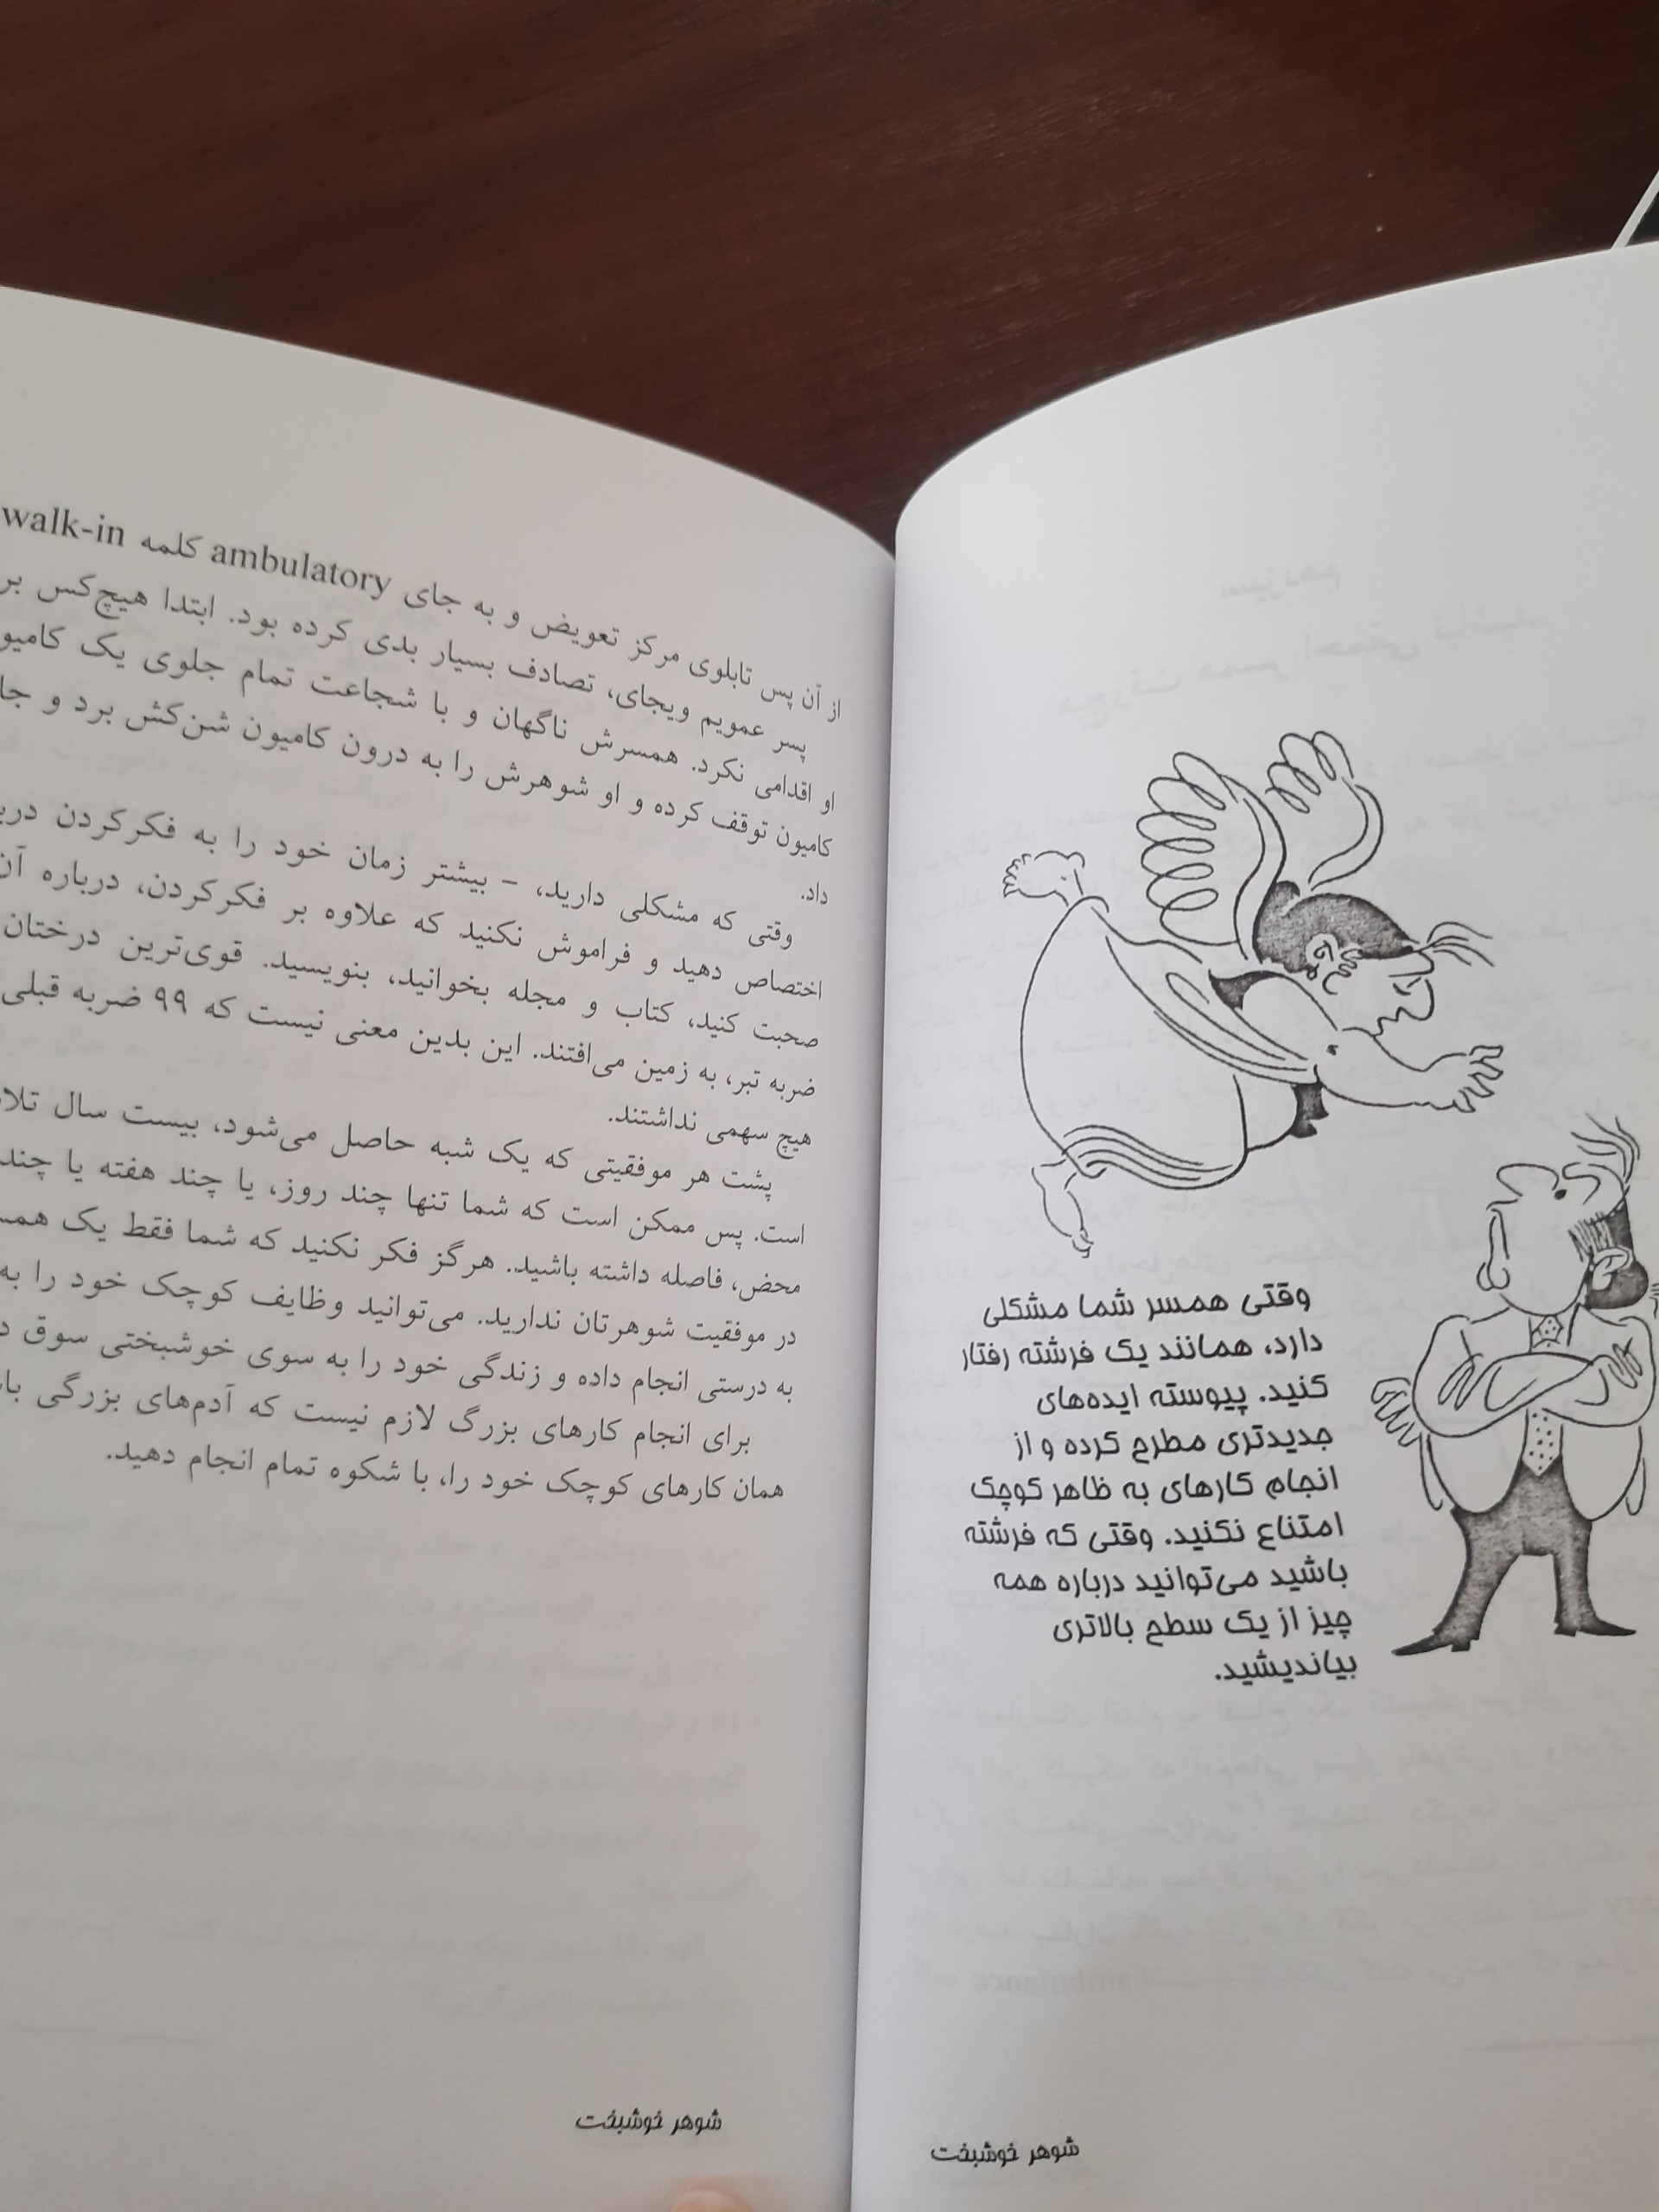 وقتی همسر شما مشکلی
دارد، همانند یک فرشته رفتار
کنید. پیوسته ایده‌های
جدیدتری مطرح کرده و از
انجام کارهای به ظاهر کوچک
امتناع نکنید. وقتی که فرشته
باشید می‌توانید درباره همه
چیز از یک سطح بالاتری
بیاندیشید.
شوهر خوشبخت
تابلوی مرکز تعویض و به جای ambulatory کلمه walk-in
از آن پس
پسر عمویم ویجای، تصادف بسیار بدی کرده بود. ابتدا هیچ‌کس
او اقدامی نکرد. همسرش ناگهان و با شجاعت تمام جلوی یک
کامیون توقف کرده و او شوهرش را به درون کامیون شن‌کش برد و
داد.
وقتی که مشکلی دارید، – بیشتر زمان خود را به فکرکردن
اختصاص دهید و فراموش نکنید که علاوه بر فکرکردن، درباره آن
صحبت کنید، کتاب و مجله بخوانید، بنویسید. قوی‌ترین درختان
ضربه تبر، به زمین می‌افتند. این بدین معنی نیست که ۹۹ ضربه قبلی
هیچ سهمی نداشتند.
پشت هر موفقیتی که یک شبه حاصل می‌شود، بیست سال
است. پس ممکن است که شما تنها چند روز، یا چند هفته یا چند
محض، فاصله داشته باشید. هرگز فکر نکنید که شما فقط یک
در موفقیت شوهرتان ندارید. می‌توانید وظایف کوچک خود را به
به درستی انجام داده و زندگی خود را به سوی خوشبختی سوق
برای انجام کارهای بزرگ لازم نیست که آدم‌های بزرگی
همان کارهای کوچک خود را، با شکوه تمام انجام دهید.
شوهر خوشبخت